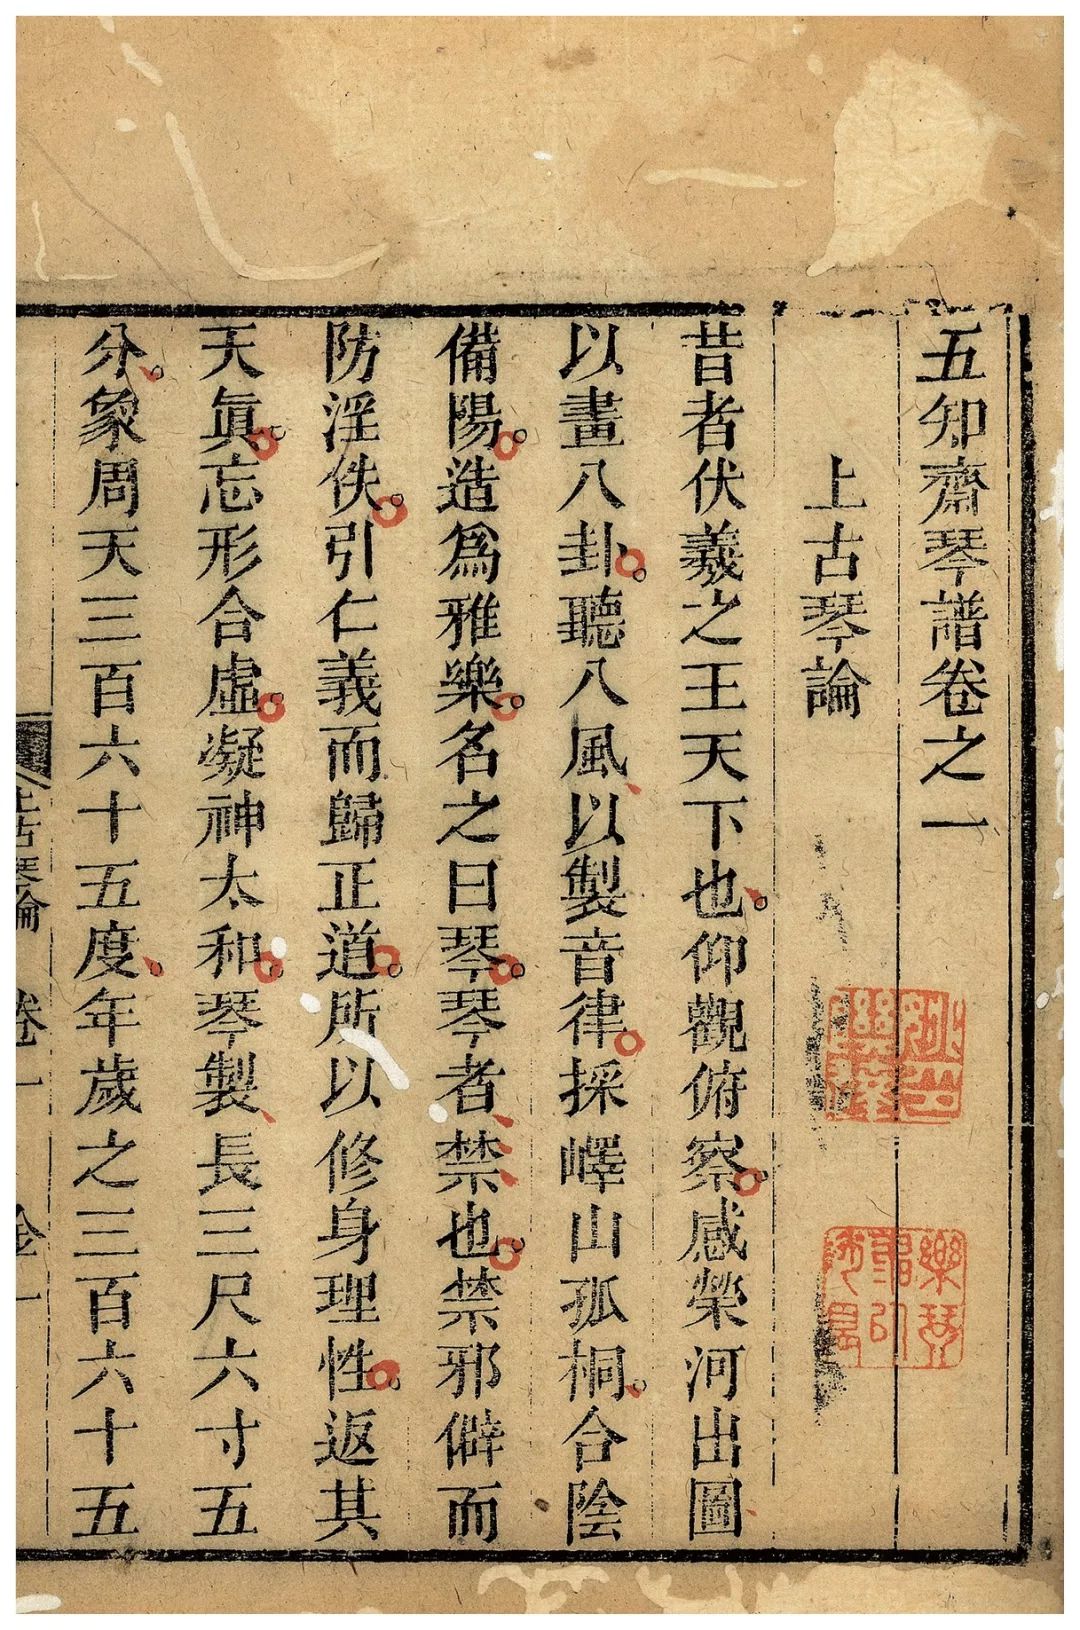 五知齋琴譜卷之一
上古琴論
昔者伏羲之王天下也。仰觀俯察。感榮河出圖
以畫八卦。聽八風以製音律採嶧山孤桐。合陰
備陽。造爲雅樂。名之曰琴。琴者禁也。禁邪僻而
防淫佚。引仁義而歸正道。所以修身理性。返其
天眞。忘形合虛。凝神太和。琴製長三尺六寸五
分。象周天三百六十五度。年歲之三百六十五
上古琴論 卷一